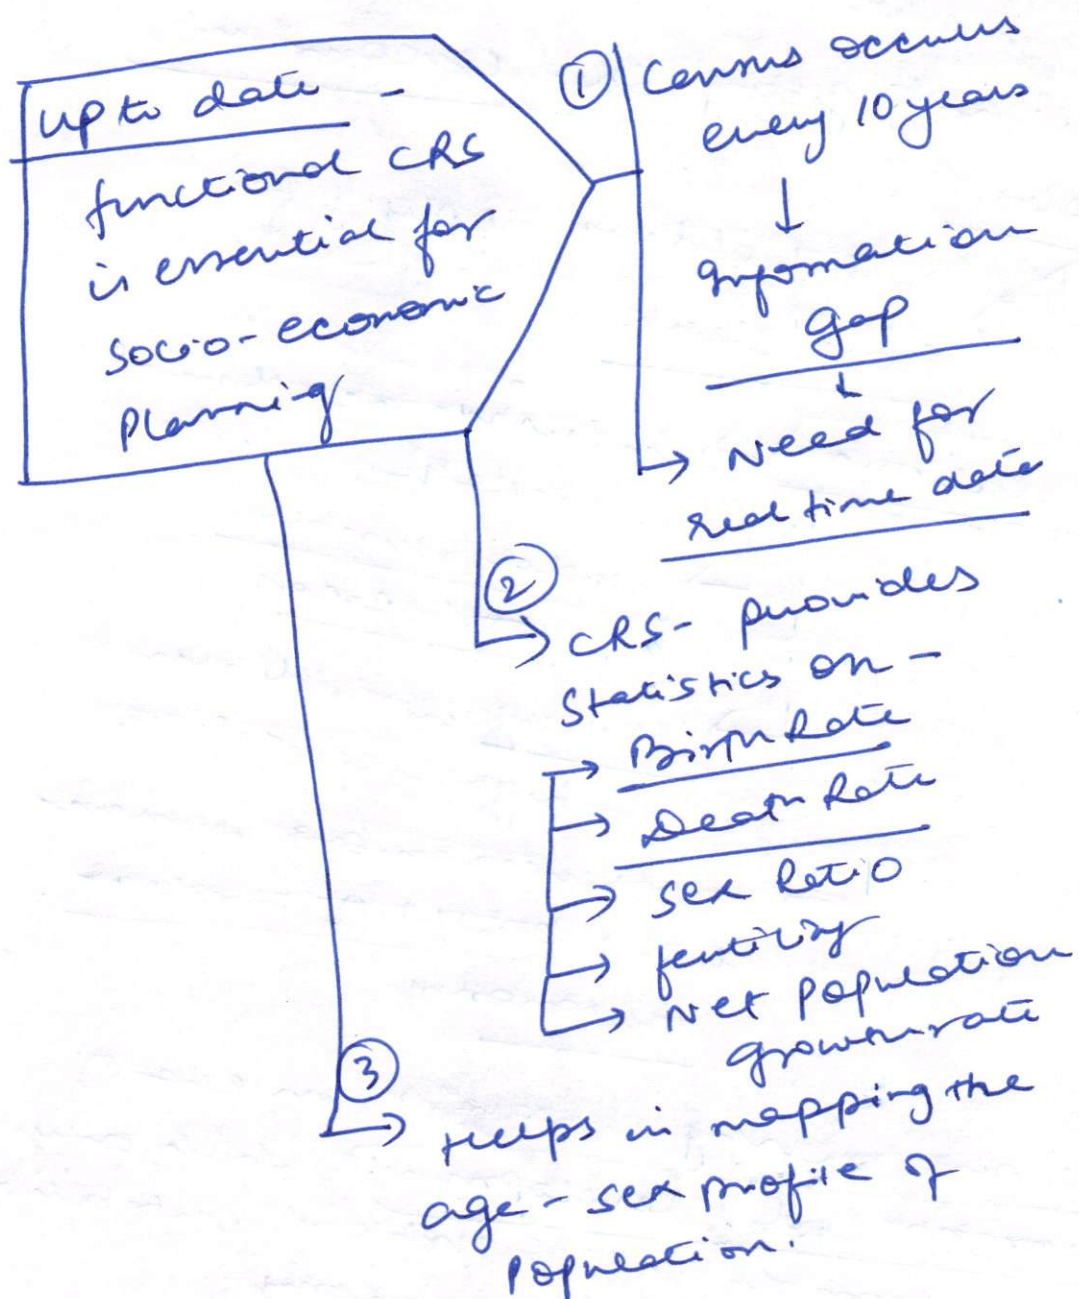 Up to date -
functional CRS
is essential for
Socio-economic
Planning
① Census occurs
every 10 years
↓
Information
gap
↓
→ Need for
real time data
②
→ CRS- provides
Statistics on -
→ Birth Rate
→ Death Rate
→ Sex Ratio
→ fertility
→ Net Population
growth rate
③
→ Helps in mapping the
age - sex profile of
population.